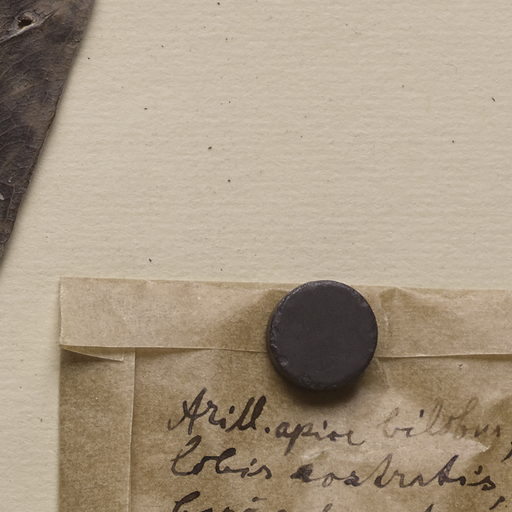 Arill. apice bilobus,
lobis rostratis,